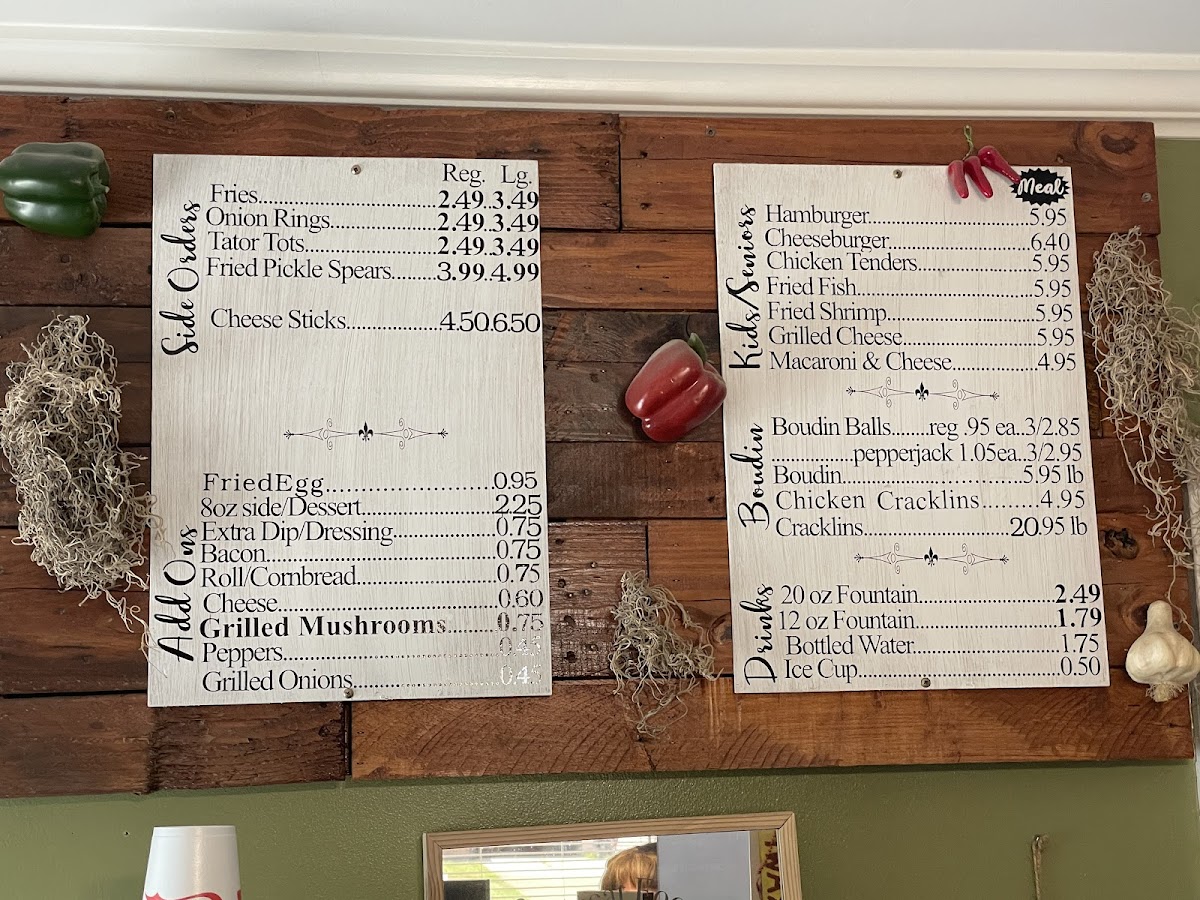 Side Orders
Reg. Lg.
Fries 2.49 3.49
Onion Rings 2.49 3.49
Tator Tots 2.49 3.49
Fried Pickle Spears 3.99 4.99
Cheese Sticks 4.50 6.50
Add Ons
Fried Egg 0.95
8oz side/Dessert 2.25
Extra Dip/Dressing 0.75
Bacon 0.75
Roll/Cornbread 0.75
Cheese 0.60
Grilled Mushrooms 0.75
Peppers 0.45
Grilled Onions 0.45
Kids/Seniors
Meal
Hamburger 5.95
Cheeseburger 6.40
Chicken Tenders 5.95
Fried Fish 5.95
Fried Shrimp 5.95
Grilled Cheese 5.95
Macaroni & Cheese 4.95
Boudin
Boudin Balls reg .95 ea..3/2.85
pepperjack 1.05ea..3/2.95
Boudin 5.95 lb
Chicken Cracklins 4.95
Cracklins 20.95 lb
Drinks
20 oz Fountain 2.49
12 oz Fountain 1.79
Bottled Water 1.75
Ice Cup 0.50